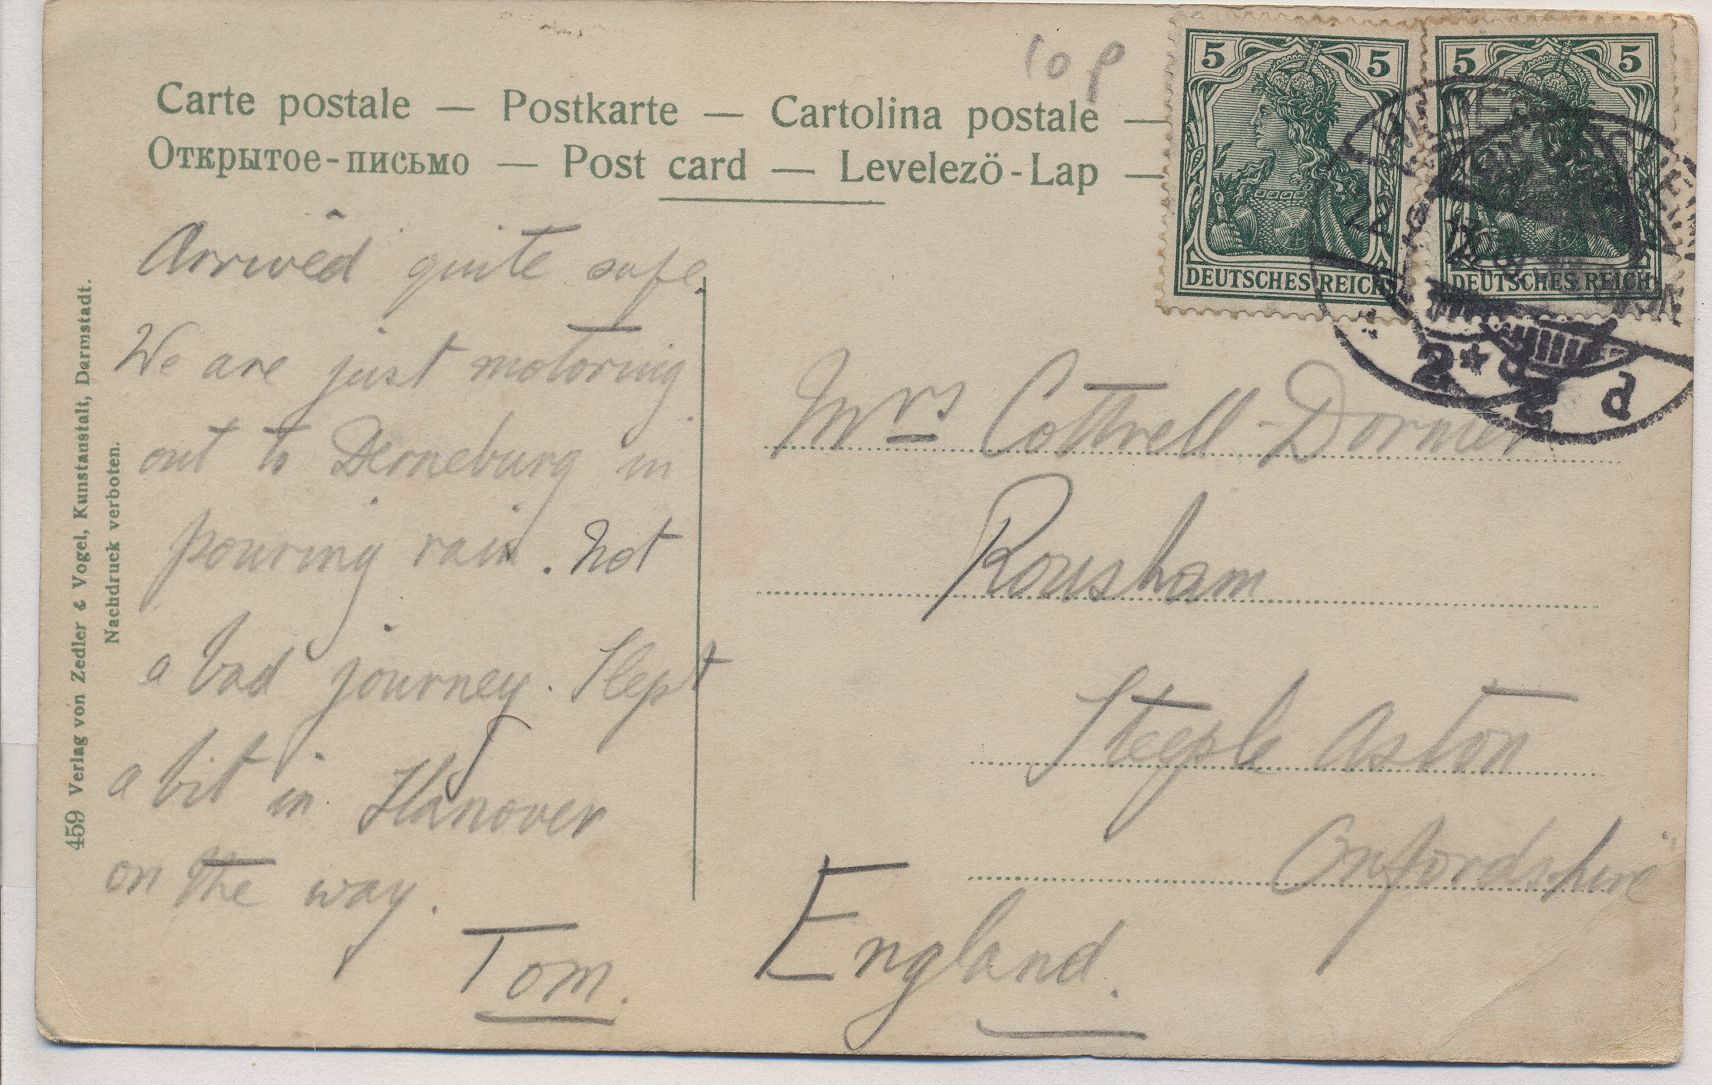 10 p
Carte postale — Postkarte — Cartolina postale —
Открытое-письмо — Post card — Levelezö-Lap —
5 5
DEUTSCHES REICH
5 5
DEUTSCHES REICH
2 * d
2 d
459 Verlag von Zedler & Vogel, Kunstanstalt, Darmstadt.
Nachdruck verboten.
Arrived quite safe.
We are just motoring
out to Derneburg in
pouring rain. Not
a bad journey. Slept
a bit in Hanover
on the way.
Tom.
Mrs Cottrell-Dormer
Rousham
Steeple Aston
Oxfordshire
England.